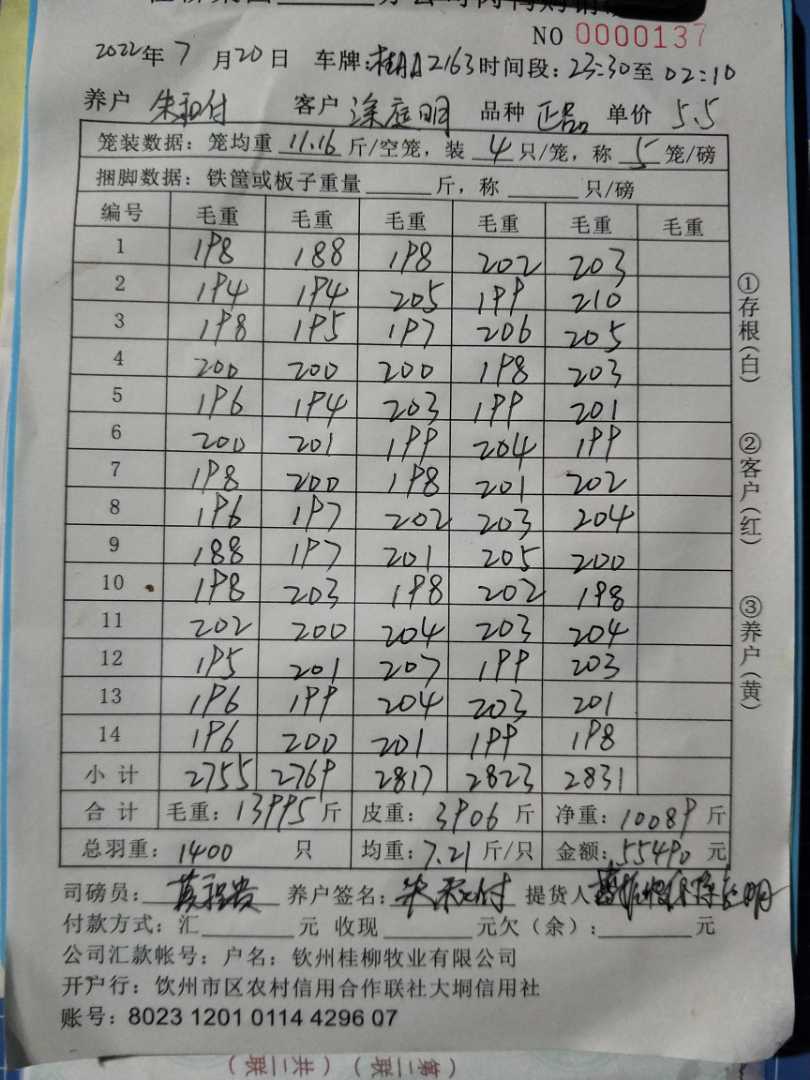 NO 0000137
2022年7月20日 车牌:桂AA2163 时间段:23:30至02:10
养户 朱和付 客户 涂庭明 品种 正品 单价 5.5
笼装数据:笼均重 11.16 斤/空笼,装 4 只/笼,称 5 笼/磅
捆脚数据:铁筐或板子重量______斤,称______只/磅
编号 毛重 毛重 毛重 毛重 毛重 毛重
1 198 188 198 202 203
2 194 194 205 199 210
3 198 195 197 206 205
4 200 200 200 198 203
5 196 194 203 199 201
6 200 201 199 204 199
7 198 200 198 201 202
8 196 197 202 203 204
9 188 197 201 205 200
10 198 203 198 202 198
11 202 200 204 203 204
12 195 201 207 199 203
13 196 199 204 203 201
14 196 200 201 199 198
小计 2755 2769 2817 2823 2831
合计 毛重:13995斤 皮重:3906斤 净重:10089斤
总羽重:1400 只 均重:7.21斤/只 金额:55490元
司磅员: 养户签名:朱和付 提货人
付款方式:汇______元 收现______元欠(余):______元
公司汇款帐号:户名:钦州桂柳牧业有限公司
开户行:钦州市区农村信用合作联社大垌信用社
账号:8023 1201 0114 4296 07
①存根(白)
②客户(红)
③养户(黄)
(第二联)(共三联)